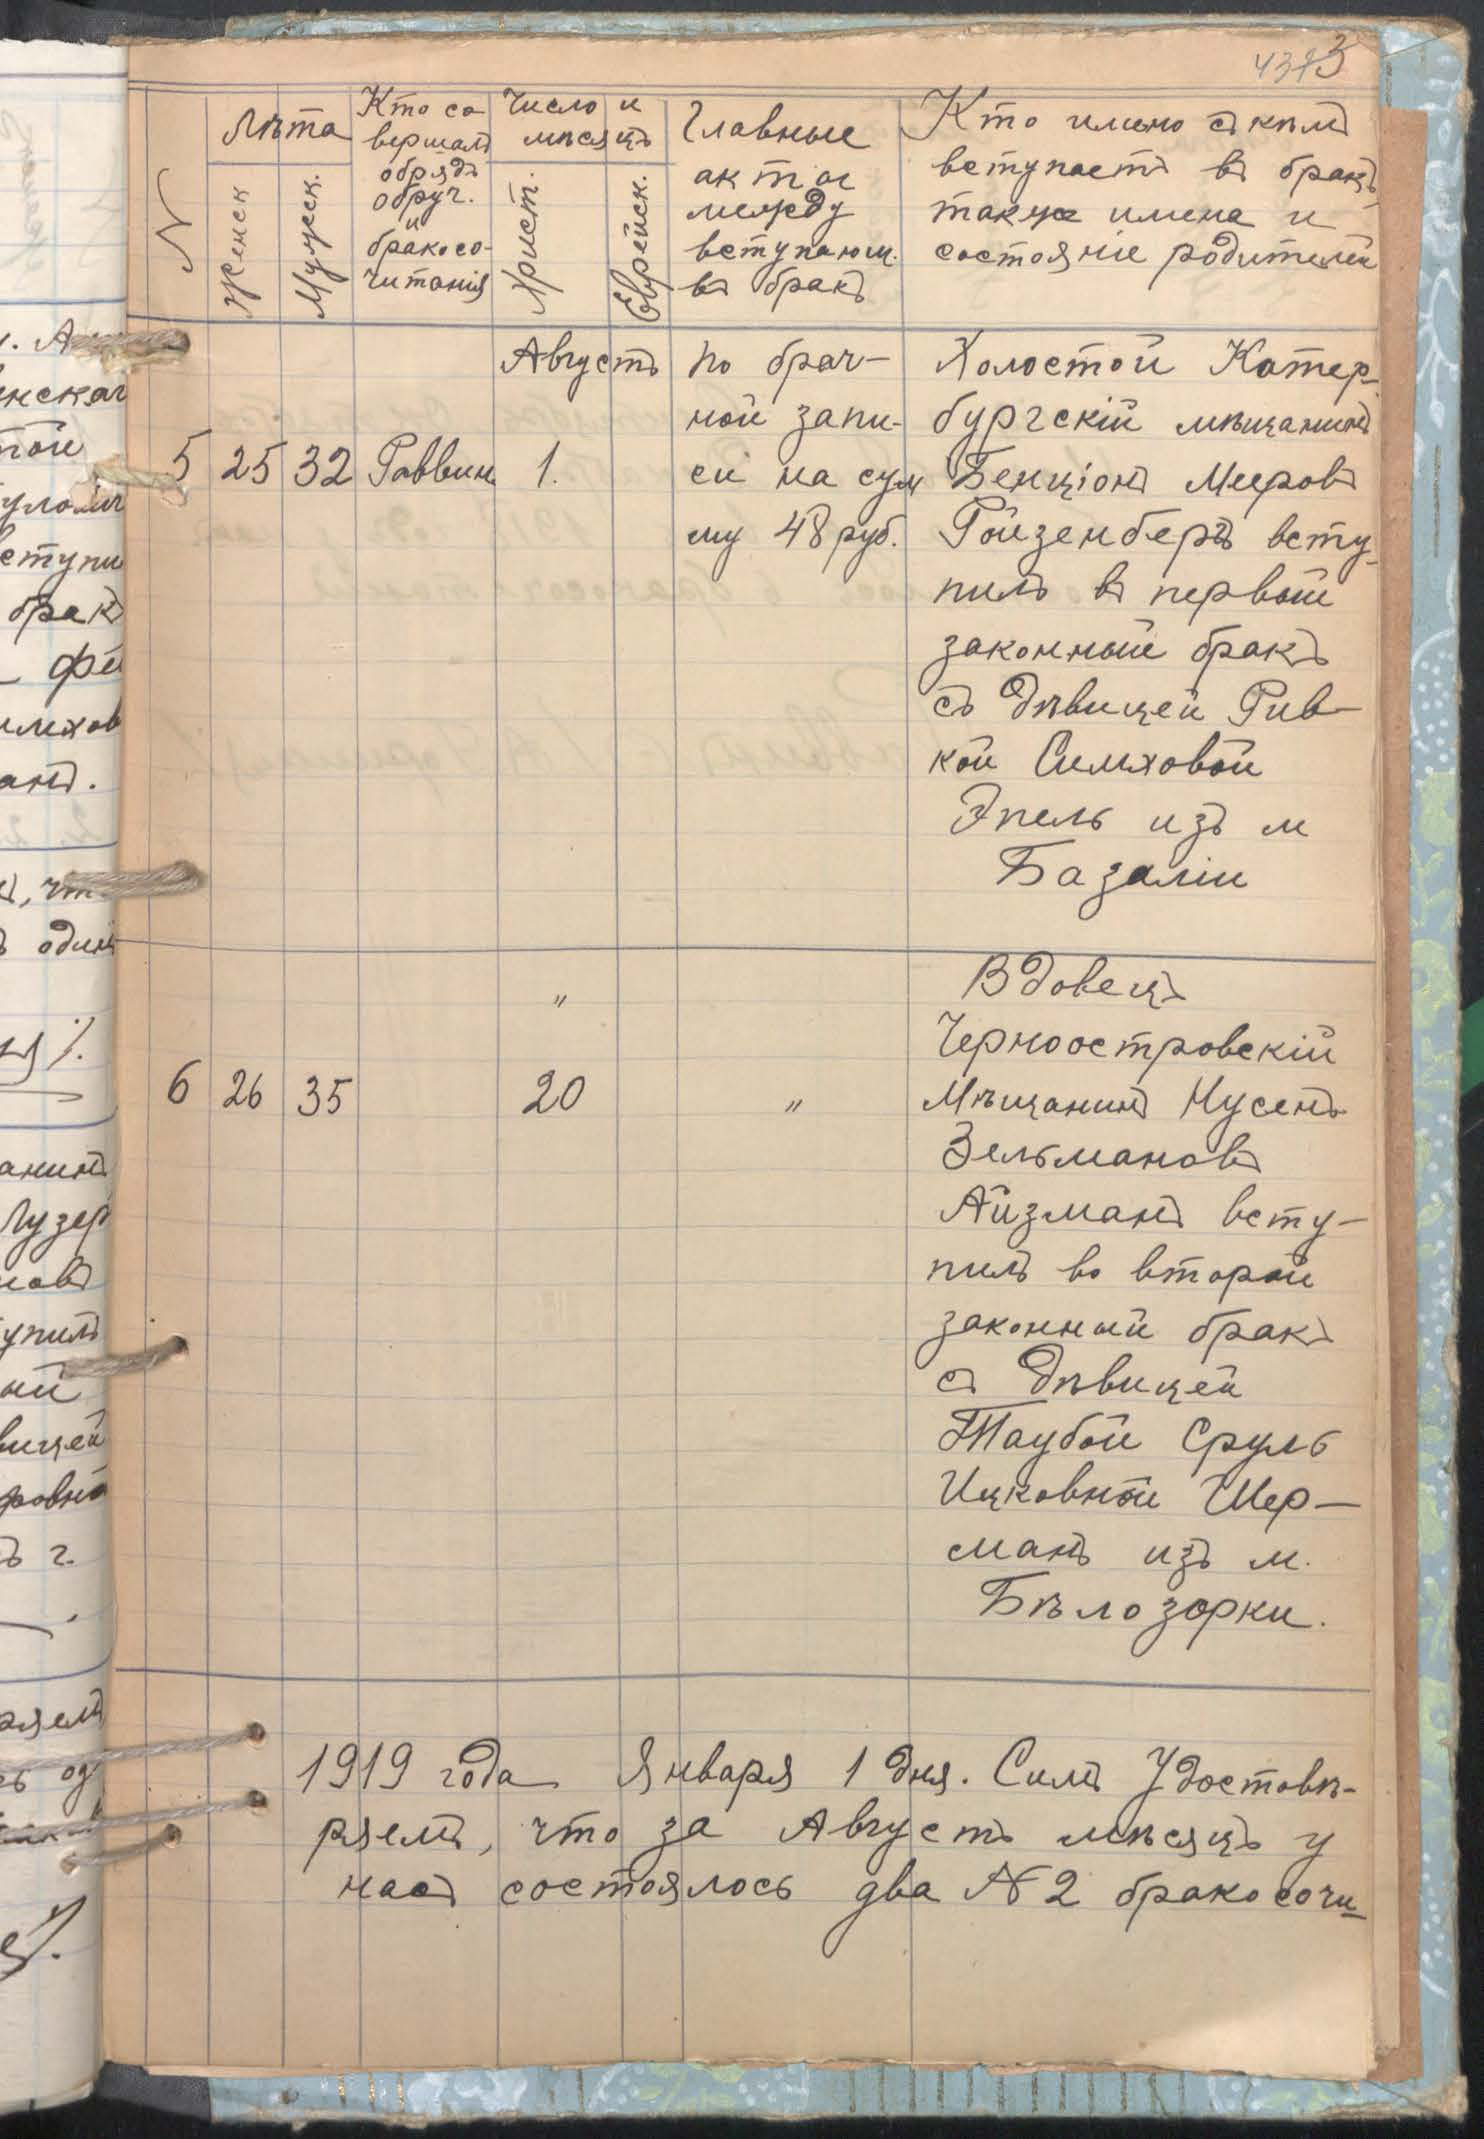 3
N
Лѣта
Женск
Мужск.
Кто со
вершалъ
обрядъ
обруч.
и
бракосо-
читанія
Число и
мѣсяцъ
Христ.
Еврейск.
Главные
акты
между
вступающ.
въ бракъ
Кто имено съ кѣмъ
вступаетъ въ бракъ
также имена и
состояніе родителей
Августъ
5 25 32 Раввин. 1.
по брач-
ной запи-
си на сум
му 48 руб.
Холостой Катер-
бургскій мѣщанинъ
Бенціонъ Мееровъ
Ройзенбергъ всту-
пилъ въ первый
законный бракъ
съ дѣвицей Рив-
кой Симховой
Эпель изъ м
Базаліи
"
6 26 35 20 "
Вдовецъ
Черноостровскій
Мѣщанинъ Нусенъ
Зельмановъ
Айзманъ всту-
пилъ во второй
законный бракъ
съ дѣвицей
Таубой Сруль
Ицковной Шер-
манъ изъ м.
Бѣлозорки.
1919 года Января 1 дня. Симъ Удостовѣ-
ряемъ, что за Августъ мѣсяцъ у
насъ состоялось два № 2 бракосочи-